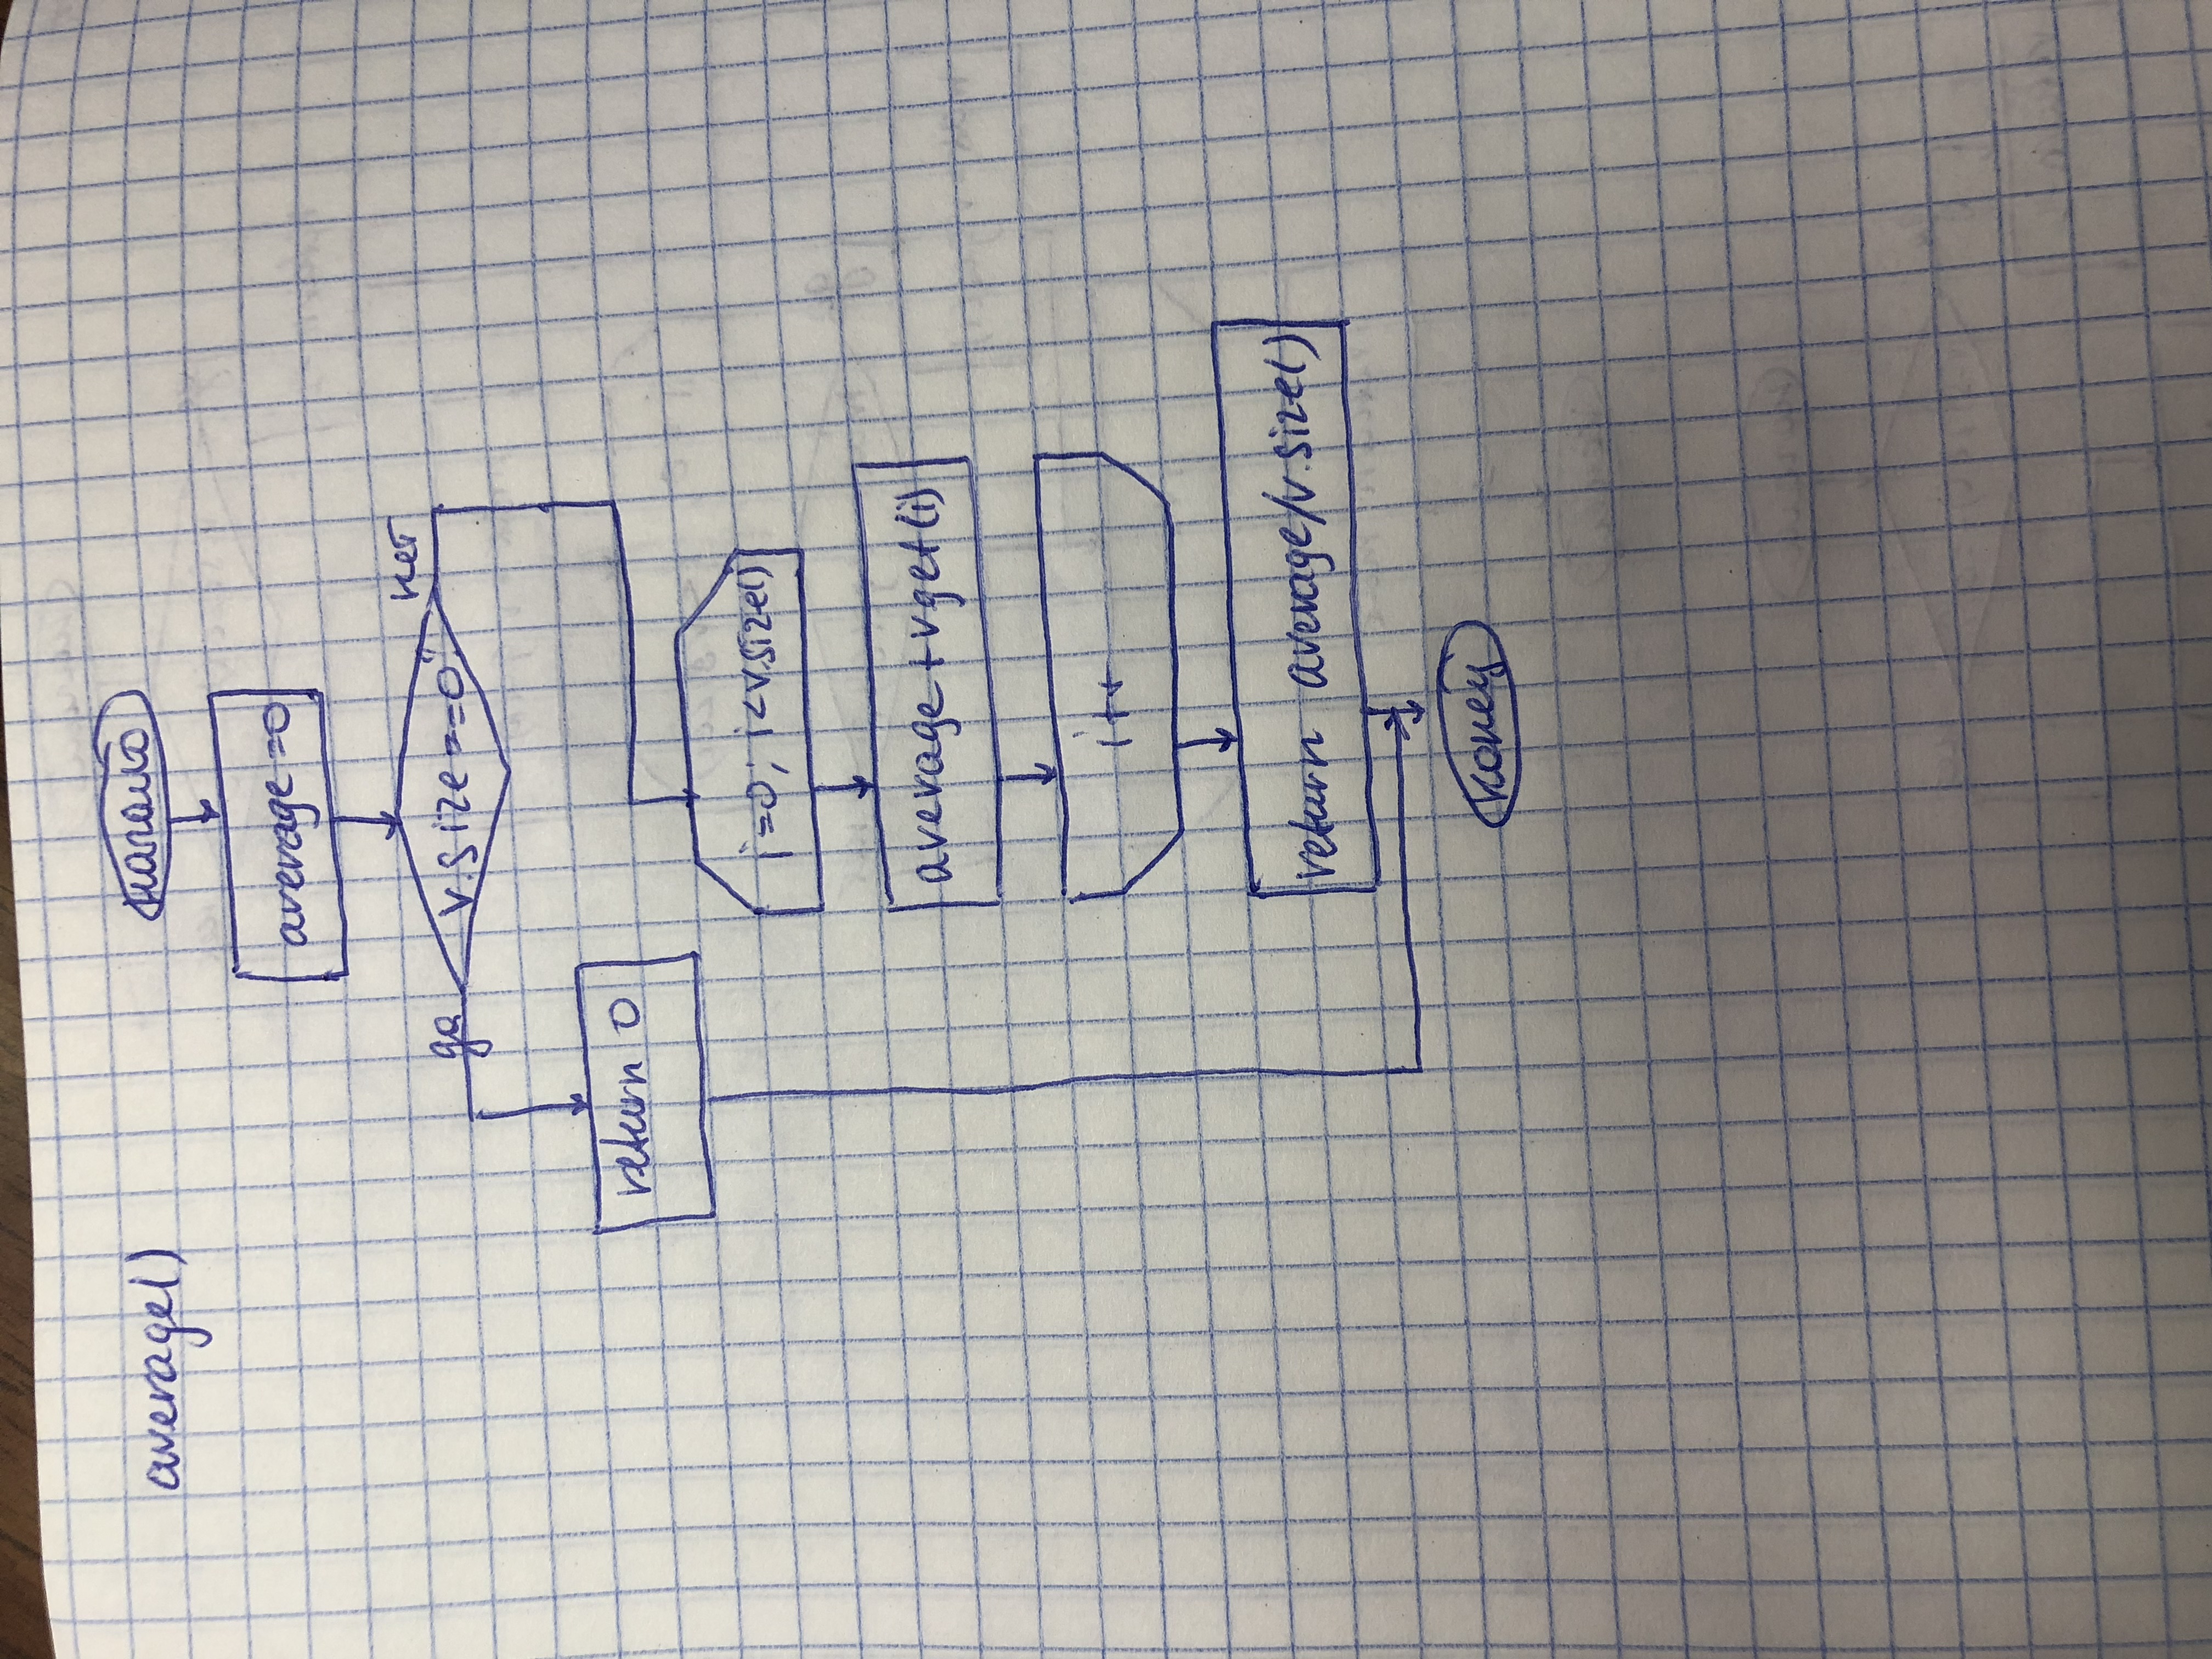 average()
начало
average =0
v.size==0
да
нет
return 0
i=0; i<v.size()
average+vget(i)
i++
return average/v.size()
конец